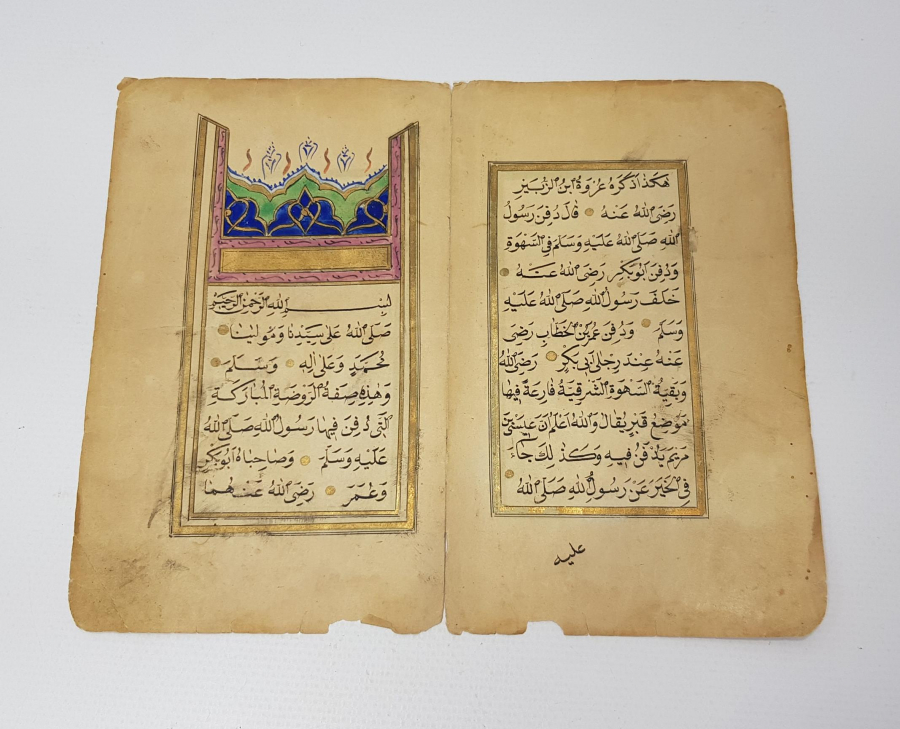 بِسْمِ اللهِ الرَّحْمٰنِ الرَّحِيمِ
صَلَّى اللهُ عَلَى سَيِّدِنَا وَمَوْلَيْنَا
مُحَمَّدٍ وَعَلَى اٰلِهِ وَسَلَّمَ
وَهٰذِهِ صِفَةُ الرَّوْضَةِ الْمُبَارَكَةِ
الَّتِي دُفِنَ فِيهَا رَسُولُ اللهِ صَلَّى اللهُ
عَلَيْهِ وَسَلَّمَ وَصَاحِبَاهُ اَبُو بَكْرٍ
وَعُمَرَ رَضِيَ اللهُ عَنْهُمَا
هٰكَذَا ذَكَرَهُ عُرْوَةُ ابْنُ الزُّبَيْرِ
رَضِيَ اللهُ عَنْهُ قَالَ دُفِنَ رَسُولُ
اللهِ صَلَّى اللهُ عَلَيْهِ وَسَلَّمَ فِي السَّهْوَةِ
وَدُفِنَ اَبُو بَكْرٍ رَضِيَ اللهُ عَنْهُ
خَلْفَ رَسُولِ اللهِ صَلَّى اللهُ عَلَيْهِ
وَسَلَّمَ وَدُفِنَ عُمَرُ بْنُ الْخَطَّابِ رَضِيَ
عَنْهُ عِنْدَ رِجْلَيْ اَبِي بَكْرٍ رَضِيَ اللهُ
وَبَقِيَتِ السَّهْوَةُ الشَّرْقِيَّةُ فَارِغَةً فِيهَا
مَوْضِعُ قَبْرٍ يُقَالُ وَاللهُ اَعْلَمُ اَنَّ عِيسَى بْنَ
مَرْيَمَ يُدْفَنُ فِيهِ وَكَذٰلِكَ جَاءَ
فِي الْخَبَرِ عَنْ رَسُولِ اللهِ صَلَّى اللهُ
عليه